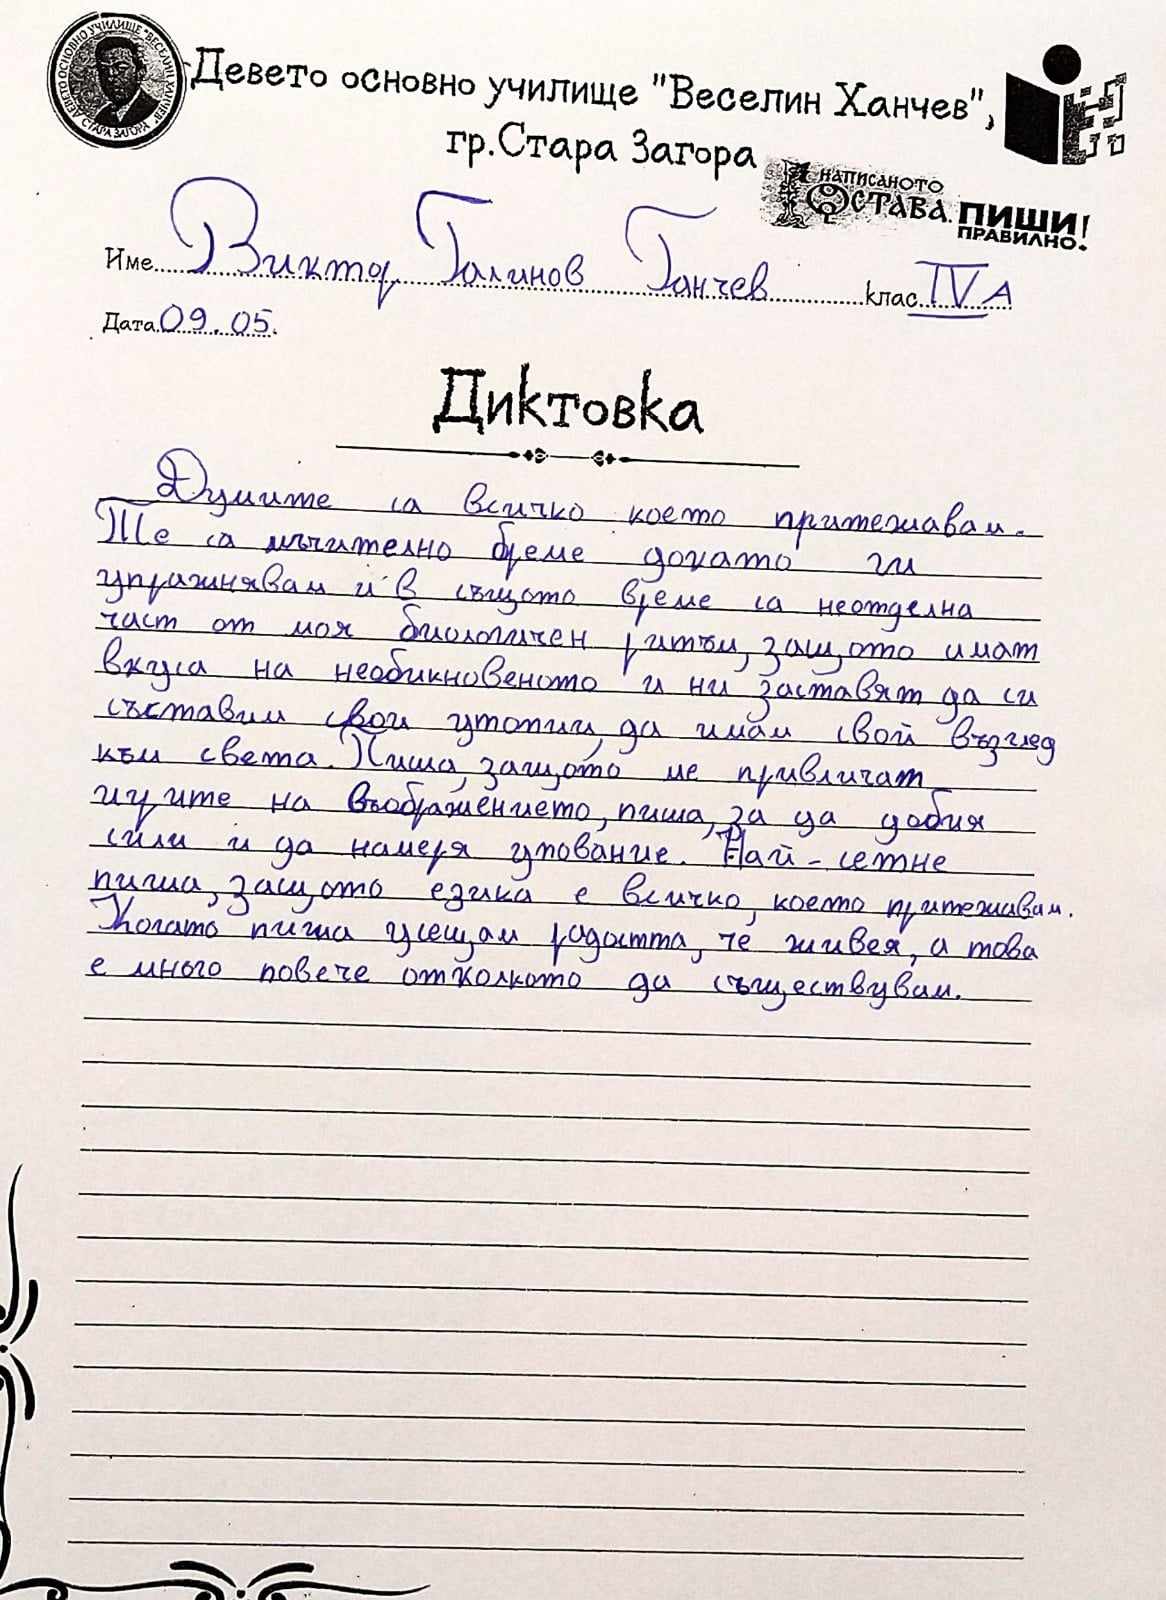 ДЕВЕТО ОСНОВНО УЧИЛИЩЕ "ВЕСЕЛИН ХАНЧЕВ" СТАРА ЗАГОРА
Девето основно училище "Веселин Ханчев",
гр.Стара Загора
НАПИСАНОТО
ОСТАВА. ПИШИ
ПРАВИЛНО!
Име Виктор Галинов Ганчев клас IV А
Дата 09.05.
Диктовка
Думите са всичко което притежавам.
Те са мъчително бреме докато ги
упражнявам и в същото време са неотделна
част от моя биологичен ритъм, защото имат
вкуса на необикновеното и ни заставят да си
съставим свои утопии, да имам свой възглед
към света. Пиша, защото ме привличат
игрите на въображението, пиша, за да добия
сили и да намеря упование. Най-сетне
пиша, защото езика е всичко, което притежавам.
Когато пиша усещам радостта, че живея, а това
е много повече отколкото да съществувам.